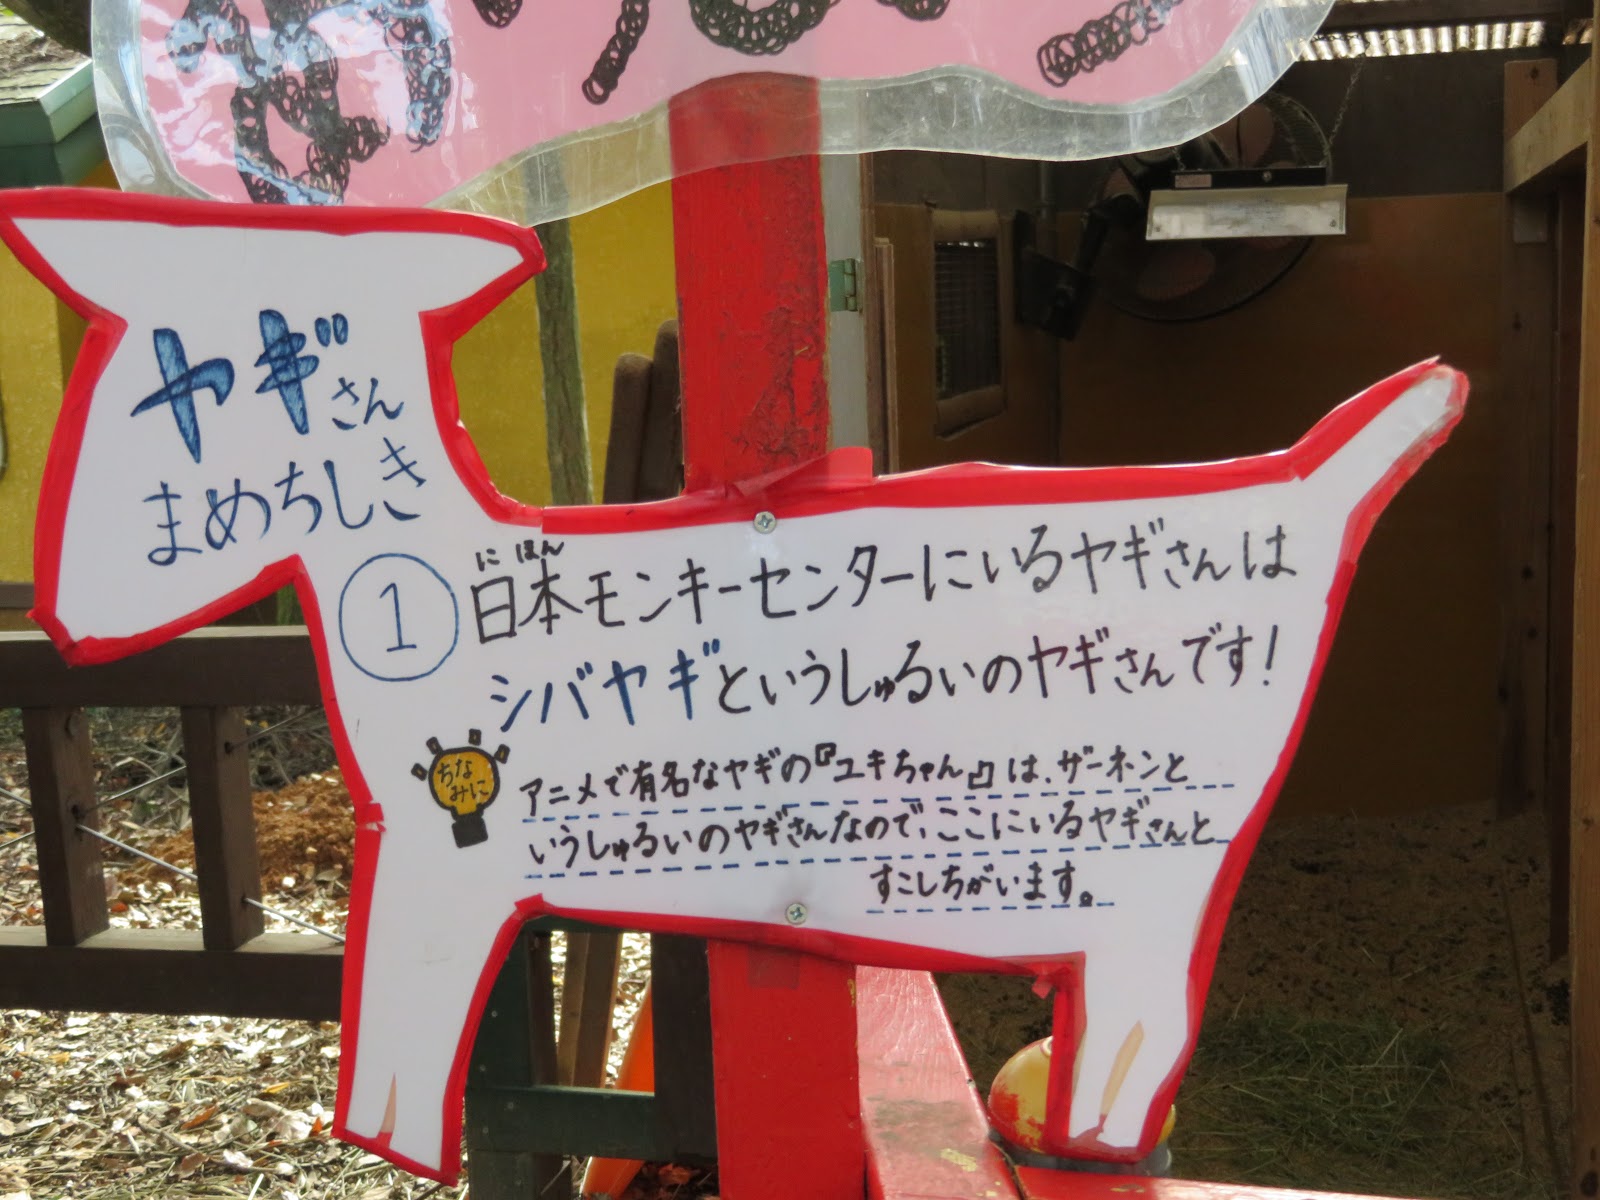 ヤギさん
まめちしき
① 日本モンキーセンターにいるヤギさんは
にほん
シバヤギというしゅるいのヤギさんです!
ちなみに
アニメで有名なヤギの『ユキちゃん』は、ザーネンと
いうしゅるいのヤギさんなので、ここにいるヤギさんと
すこしちがいます。